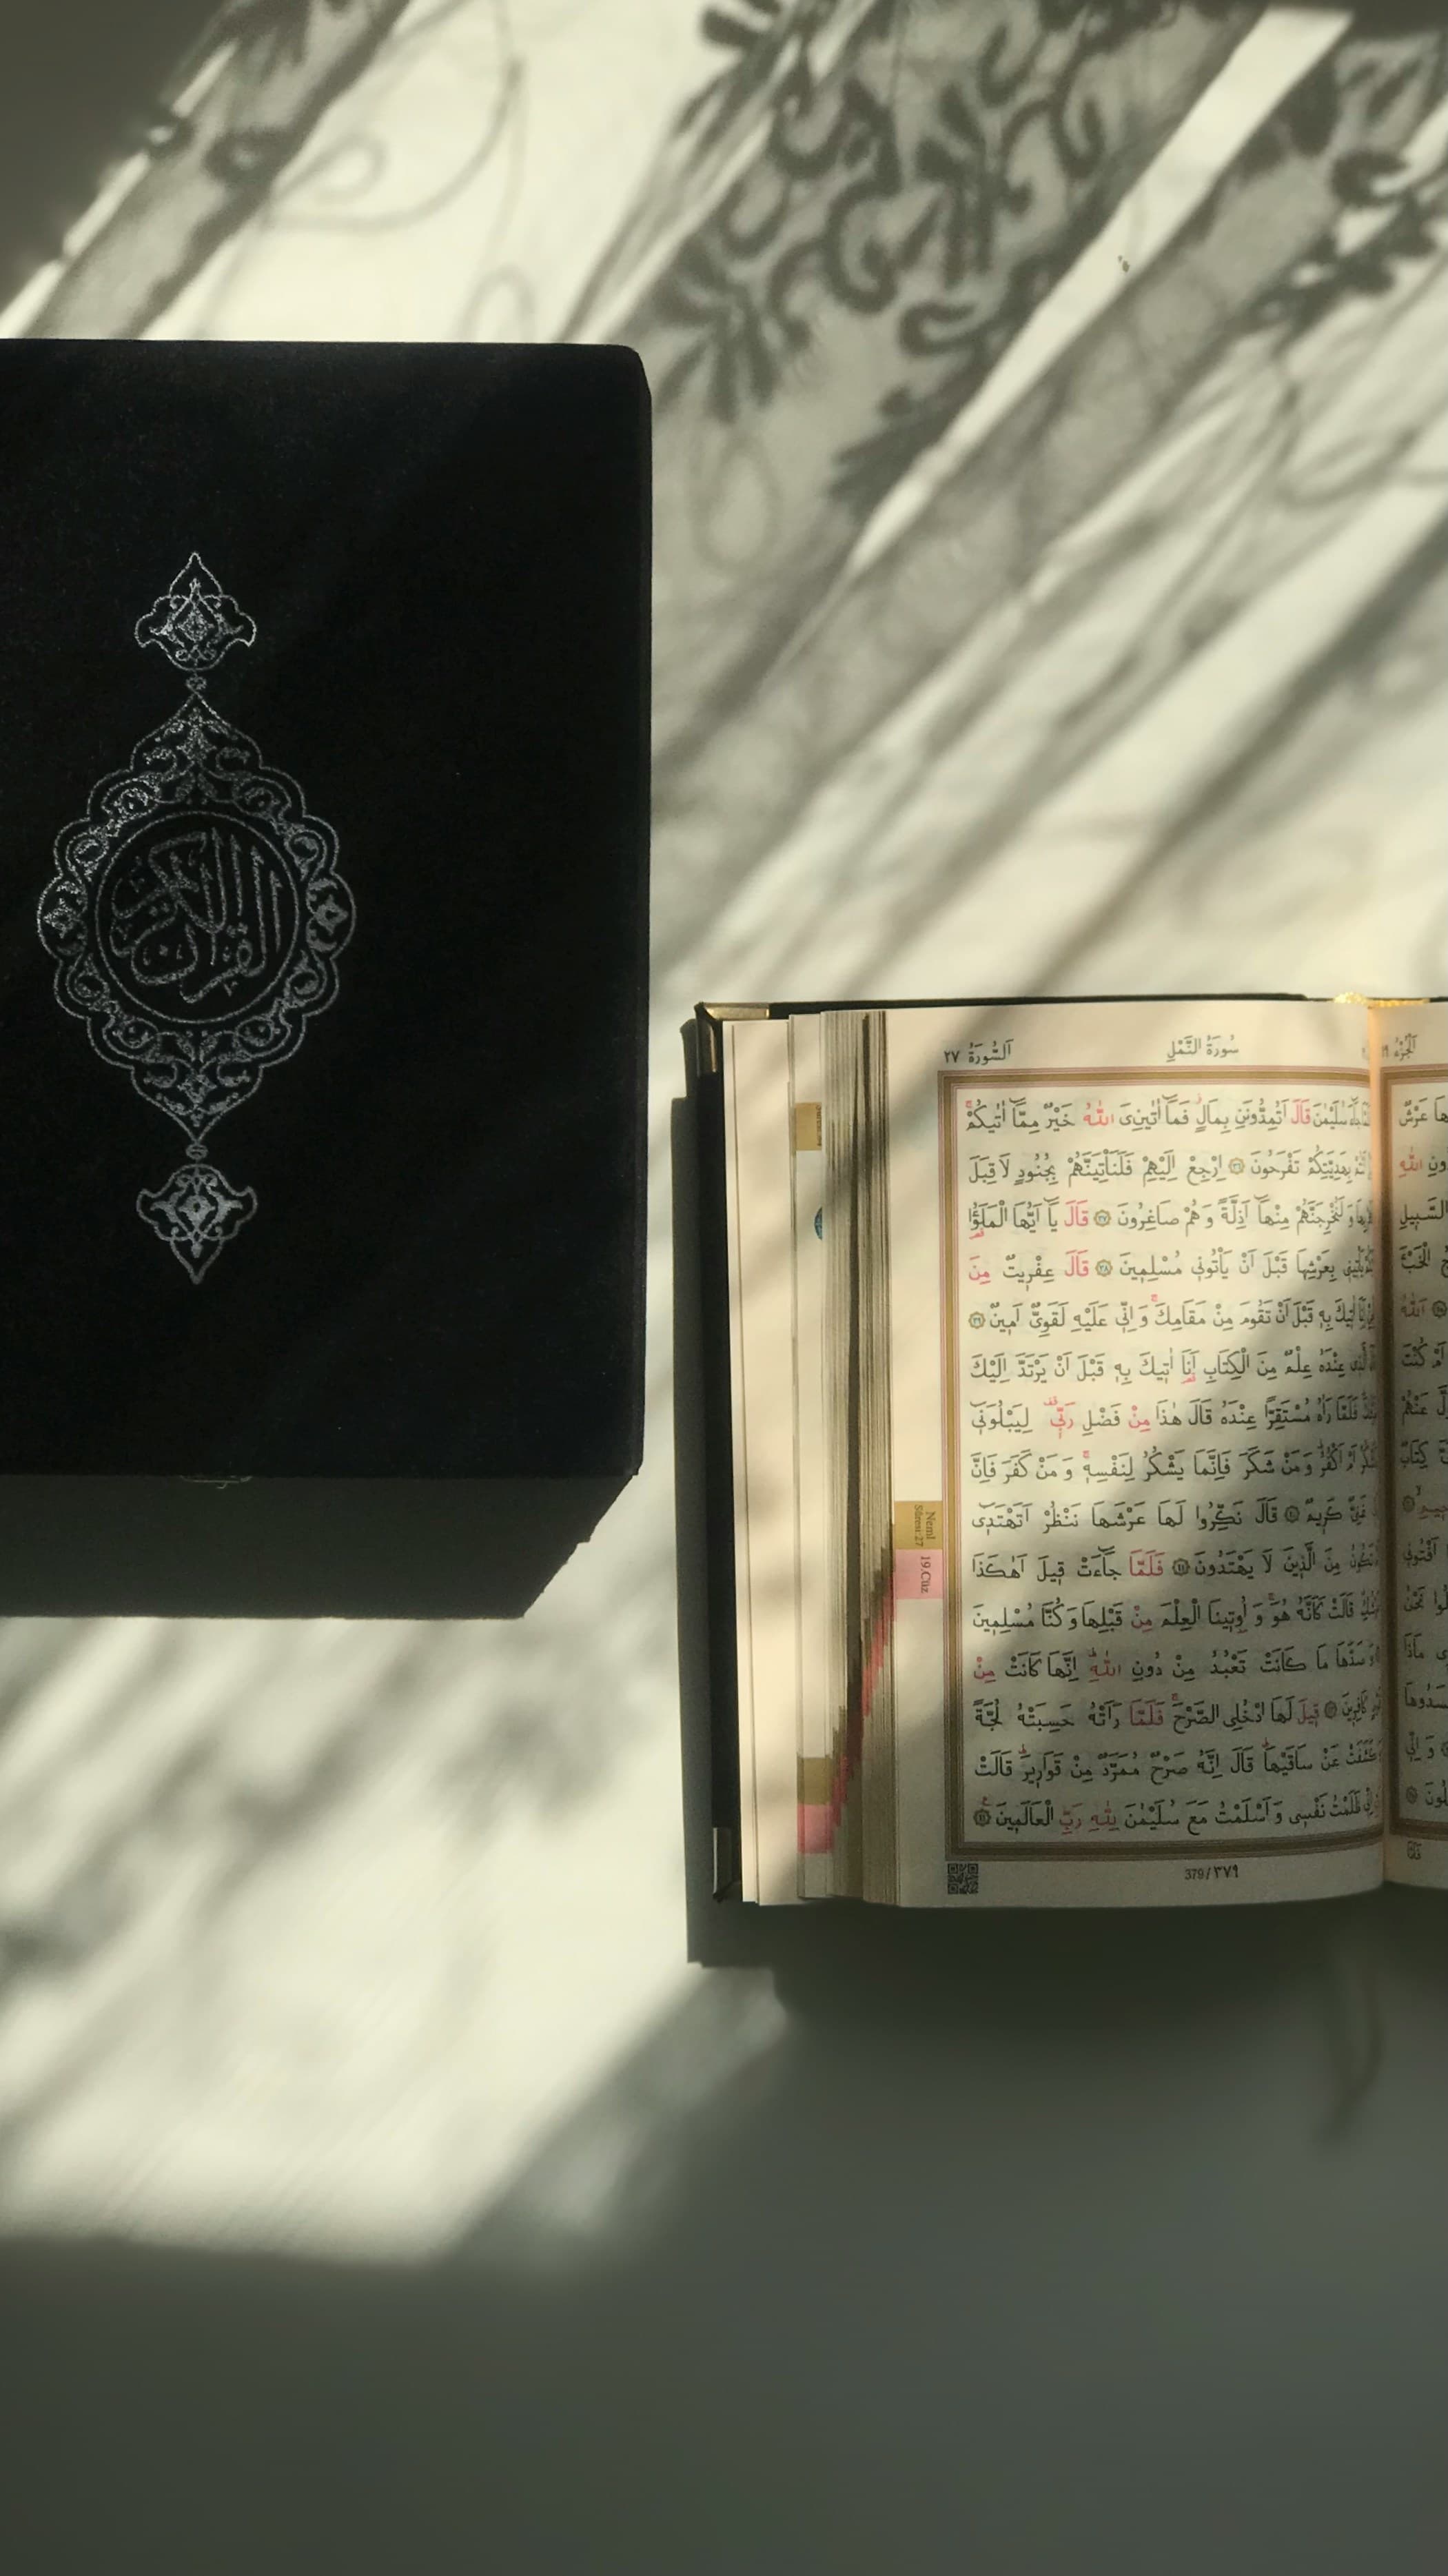 القرآن الكريم
اَلسُّورَةُ ٢٧
سُورَةُ النَّمْلِ
اَلْجُزْءُ ١٩
سُلَيْمٰنَ قَالَ اَتُمِدُّونَنِ بِمَالٍ فَمَٓا اٰتٰينِيَ اللّٰهُ خَيْرٌ مِمَّٓا اٰتٰيكُمْۚ
بِهَدِيَّتِكُمْ تَفْرَحُونَ ۞ اِرْجِعْ اِلَيْهِمْ فَلَنَأْتِيَنَّهُمْ بِجُنُودٍ لَا قِبَلَ
وَلَنُخْرِجَنَّهُمْ مِنْهَٓا اَذِلَّةً وَهُمْ صَاغِرُونَ ۞ قَالَ يَٓا اَيُّهَا الْمَلَؤُ۬ا
بِعَرْشِهَا قَبْلَ اَنْ يَأْتُونٖى مُسْلِمٖينَ ۞ قَالَ عِفْرٖيتٌ مِنَ
اٰتٖيكَ بِهٖ قَبْلَ اَنْ تَقُومَ مِنْ مَقَامِكَۚ وَاِنّٖى عَلَيْهِ لَقَوِىٌّ اَمٖينٌ ۞
عِنْدَهُ عِلْمٌ مِنَ الْكِتَابِ اَنَا۬ اٰتٖيكَ بِهٖ قَبْلَ اَنْ يَرْتَدَّ اِلَيْكَ
فَلَمَّا رَاٰهُ مُسْتَقِرًّا عِنْدَهُ قَالَ هٰذَا مِنْ فَضْلِ رَبّٖى لِيَبْلُوَنٖٓى
اَمْ اَكْفُرُ وَمَنْ شَكَرَ فَاِنَّمَا يَشْكُرُ لِنَفْسِهٖۚ وَمَنْ كَفَرَ فَاِنَّ
غَنِىٌّ كَرٖيمٌ ۞ قَالَ نَكِّرُوا لَهَا عَرْشَهَا نَنْظُرْ اَتَهْتَدٖٓى
مِنَ الَّذٖينَ لَا يَهْتَدُونَ ۞ فَلَمَّا جَٓاءَتْ قٖيلَ اَهٰكَذَا
قَالَتْ كَاَنَّهُ هُوَۚ وَاُو۫تٖينَا الْعِلْمَ مِنْ قَبْلِهَا وَكُنَّا مُسْلِمٖينَ
وَصَدَّهَا مَا كَانَتْ تَعْبُدُ مِنْ دُونِ اللّٰهِ اِنَّهَا كَانَتْ مِنْ
كَافِرٖينَ ۞ قٖيلَ لَهَا ادْخُلِى الصَّرْحَۚ فَلَمَّا رَاَتْهُ حَسِبَتْهُ لُجَّةً
وَكَشَفَتْ عَنْ سَاقَيْهَا قَالَ اِنَّهُ صَرْحٌ مُمَرَّدٌ مِنْ قَوَارٖيرَ قَالَتْ
ظَلَمْتُ نَفْسٖى وَاَسْلَمْتُ مَعَ سُلَيْمٰنَ لِلّٰهِ رَبِّ الْعَالَمٖينَ ۞
379 / ٣٧٩
Neml
Sûresi 27
19.Cüz
عَرْشٌ
اللّٰهِ
السَّبٖيلِ
الْخَبْءَ
اَللّٰهُ
اَمْ كُنْتَ
عَنْهُمْ
كِتَابٌ
اَفْتُونٖى
نَحْنُ
مَاذَا
اَفْسَدُوهَا
وَاِنّٖى